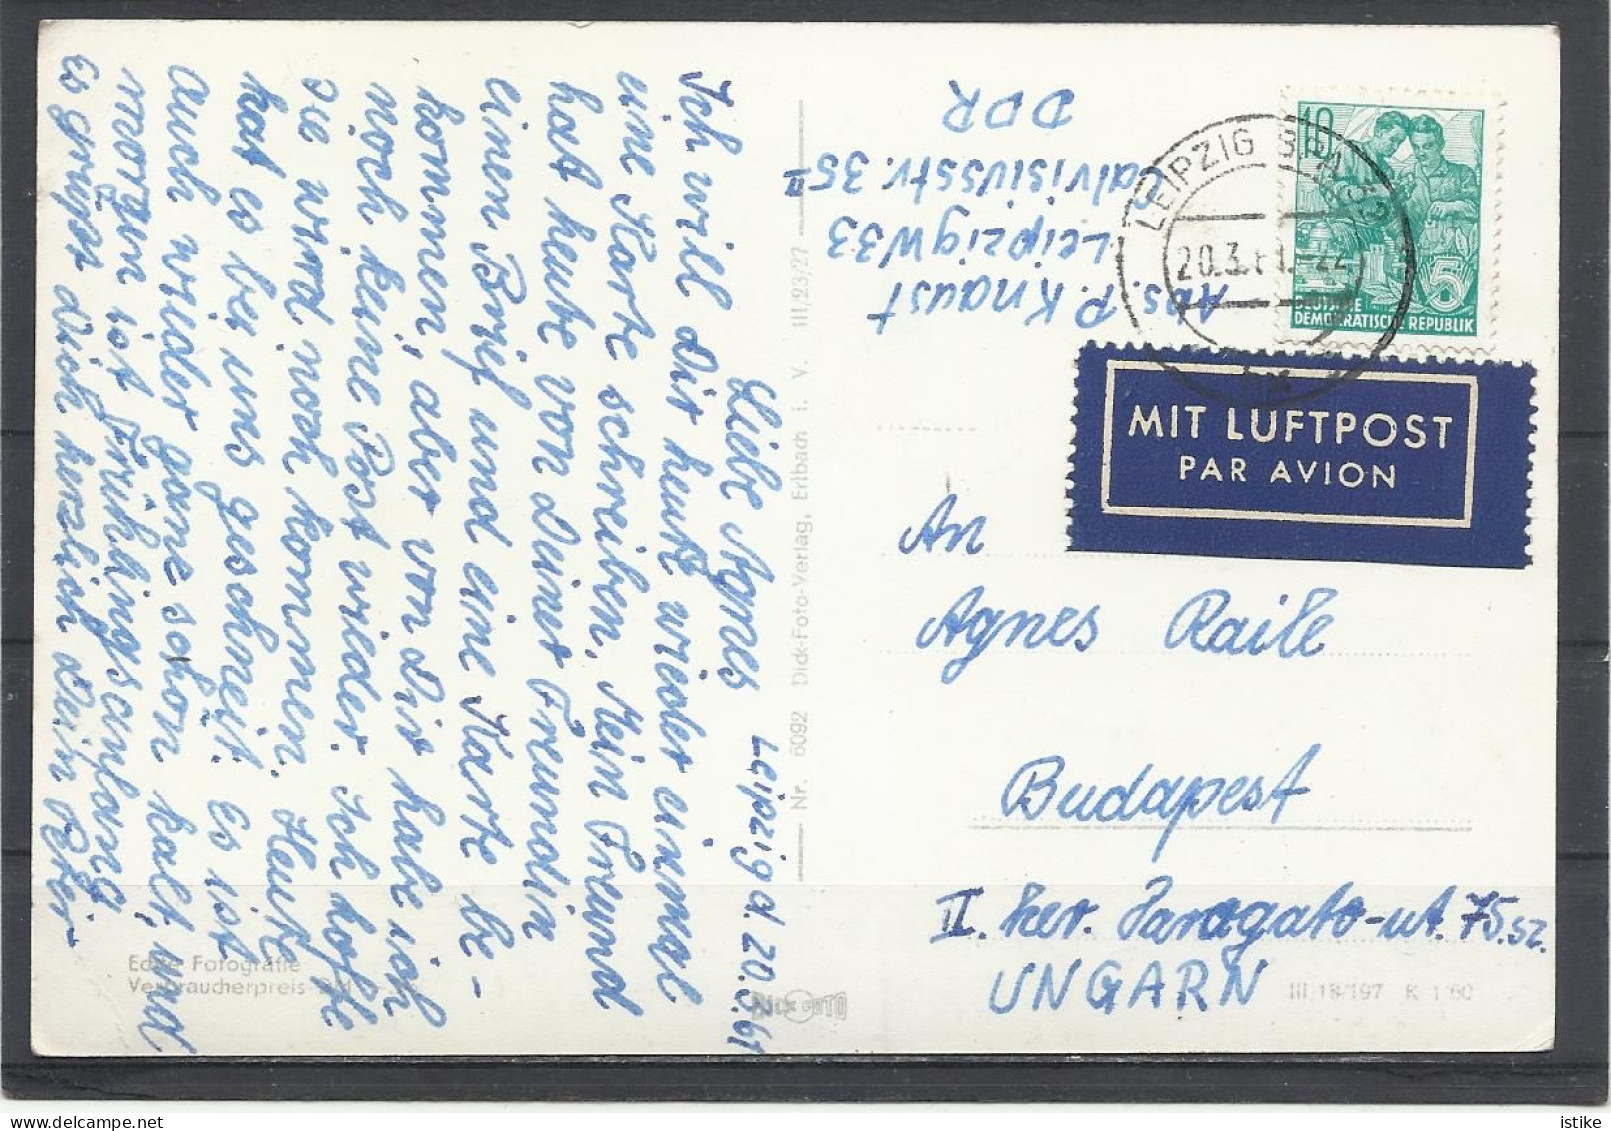 Liebe Agnes Leipzig d. 20.3.61
Ich will dir heute wieder einmal
eine Karte schreiben. Mein Freund
hat heute von deiner Freundin
einen Brief und eine Karte be-
kommen, aber von dir habe ich
noch keine Post wieder. Ich hoffe
sie wird noch kommen. Heute
hat es bei uns geschneit. Es ist
auch wieder ganz schön kalt, und
morgen ist Frühlingsanfang.
Es grüßt dich herzlich dein Peter
Echte Fotografie
Verbraucherpreis
Nr. 6092 Dick-Foto-Verlag, Erlbach i. V. III/23/27
DICK FOTO
Abs. P. Knaust
Leipzig W33
Calvisiusstr. 35 II
DDR
LEIPZIG
20.3.61.-22
10
5
DEMOKRATISCHE REPUBLIK
MIT LUFTPOST
PAR AVION
An
Agnes Raile
Budapest
II. ker. Haragato-ut. 75.sz.
UNGARN
III 18/197 K 1/60
istike